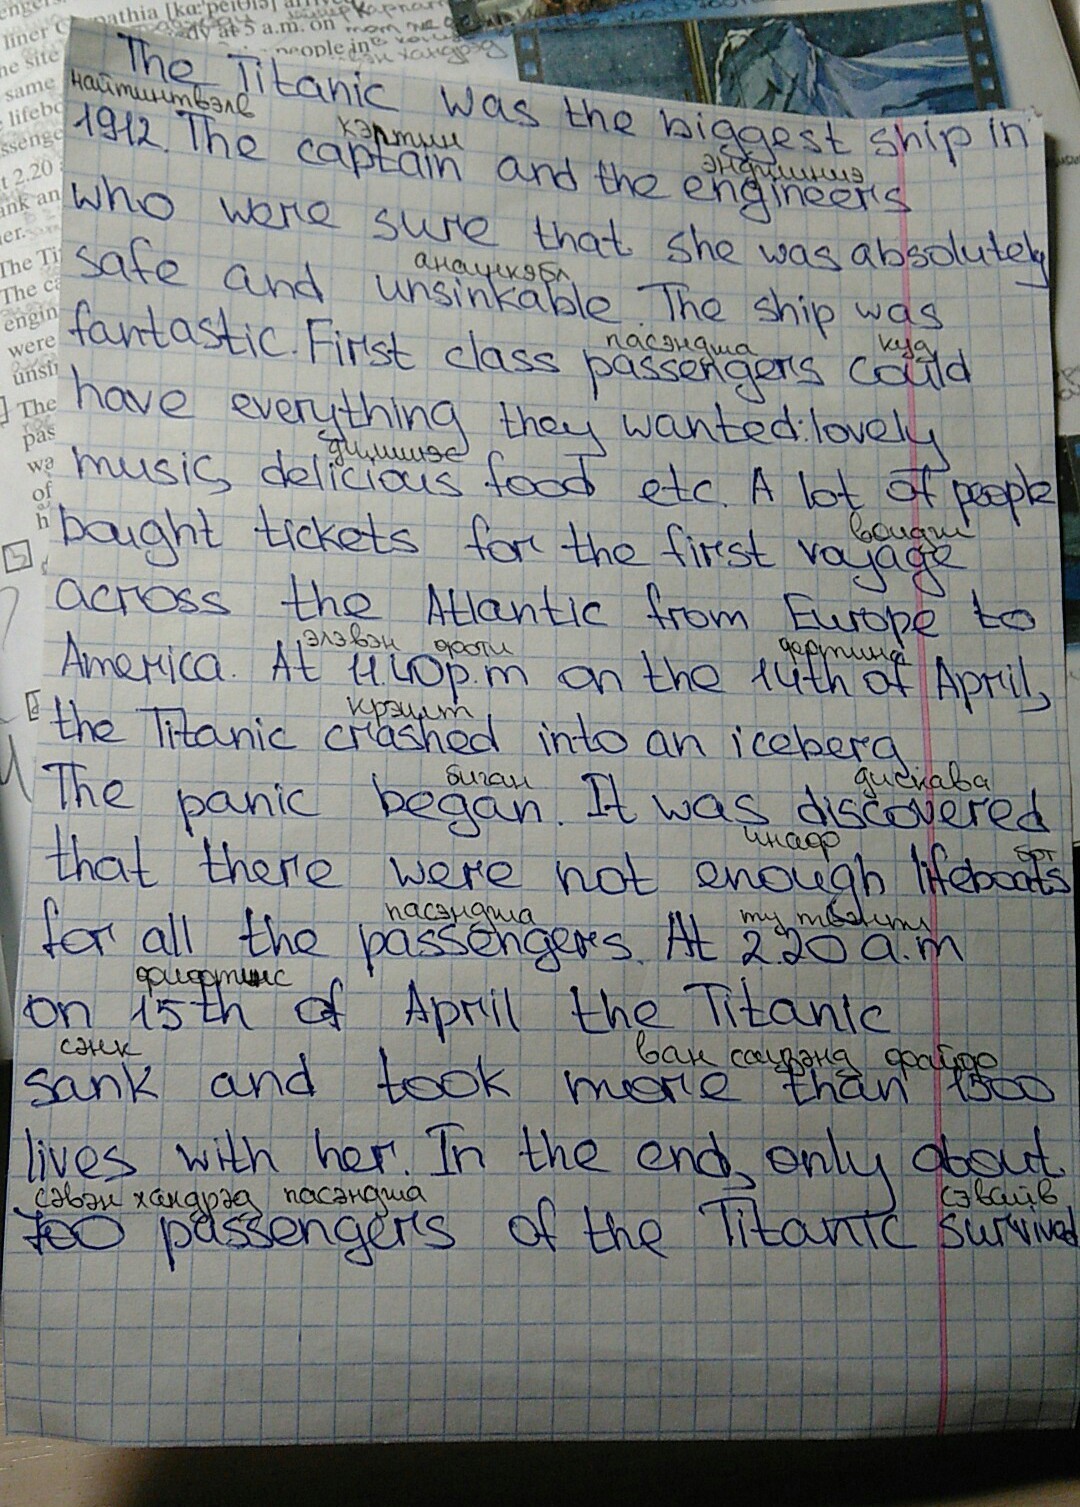 liner C
pathia [kɑːˈpeɪθɪə] arrived
at 5 a.m. on
people in
he site
same
lifebo
ssenge
t 2.20
ank an
er.
The Ti
The ca
engin
were
unsi
The
pas
wa
of
h
The Titanic was the biggest ship in
найтинтвэлв
1912. The captain and the engineers
кэптин
who were sure that she was absolutely
safe and unsinkable. The ship was
fantastic. First class passengers could
пасэнджа куд
have everything they wanted: lovely
music, delicious food etc. A lot of people
bought tickets for the first voyage
across the Atlantic from Europe to
America. At 11.40 p.m on the 14th of April,
элэвэн фоти
the Titanic crashed into an iceberg
крэшт
The panic began. It was discovered
биган дискава
that there were not enough lifeboats
инаф бот
for all the passengers. At 2.20 a.m
пасэнджа ту твэнти
on 15th of April the Titanic
sank and took more than 1500
сэнк
lives with her. In the end, only about
700 passengers of the Titanic survived
сэвэн хандрэд пасэнджа сэвайв